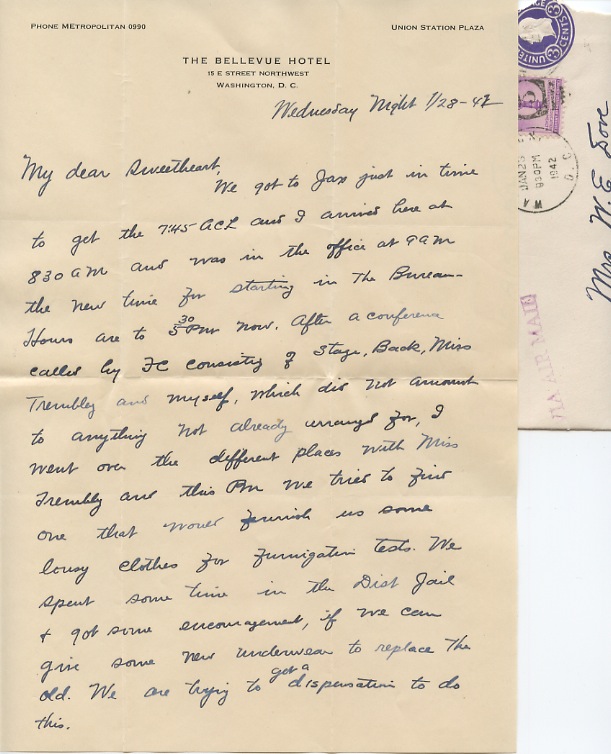 PHONE METROPOLITAN 0990
UNION STATION PLAZA
THE BELLEVUE HOTEL
15 E STREET NORTHWEST
WASHINGTON, D. C.
Wednesday Night 1/28-42
My dear Sweetheart,
We got to Jax just in time
to get the 7:45 ACL and I arrived here at
830 AM and was in the office at 9 AM
the new time for starting in The Bureau-
Hours are to 5 30 PM now. After a conference
called by FC consisting of Stage, Back, Miss
Trembley and myself, which did not amount
to anything not already arranged for, I
went over the different places with Miss
Trembly and this PM we tried to find
one that would furnish us some
lousy clothes for fumigation tests. We
spent some time in the Dist Jail
& got some encouragement, if we can
give some new underwear to replace the
old. We are trying to get a dispensation to do
this.
UNITED
3 CENTS
JAN 28
930 PM
1942
D. C.
Mrs W. E. Dove
VIA AIR MAIL